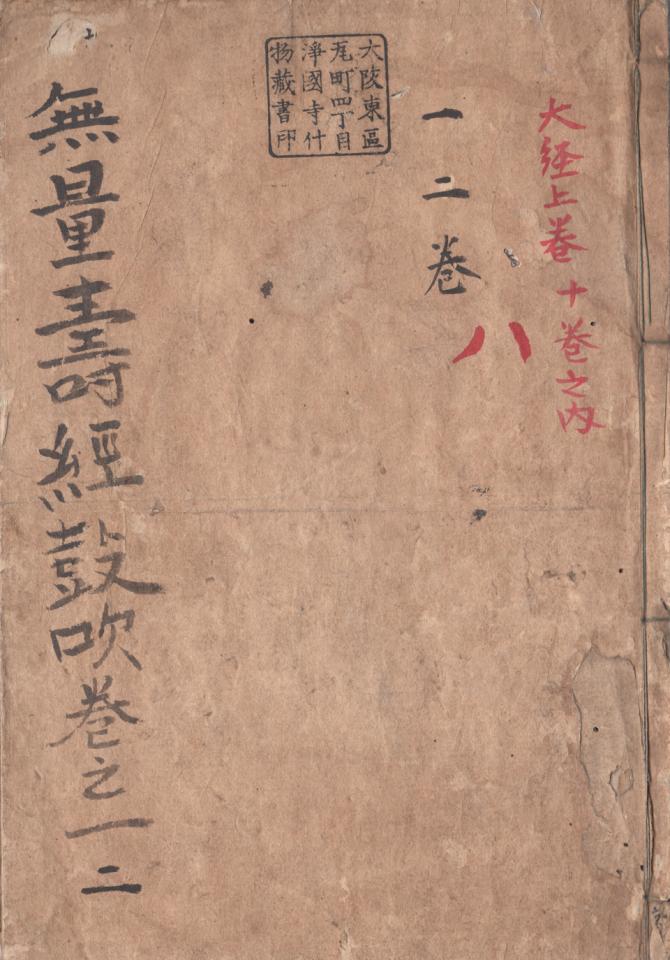 大経上巻 十巻之内
八
一二巻
大阪東區
瓦町四丁目
淨國寺什
物藏書印
無量壽經鼓吹巻之一二